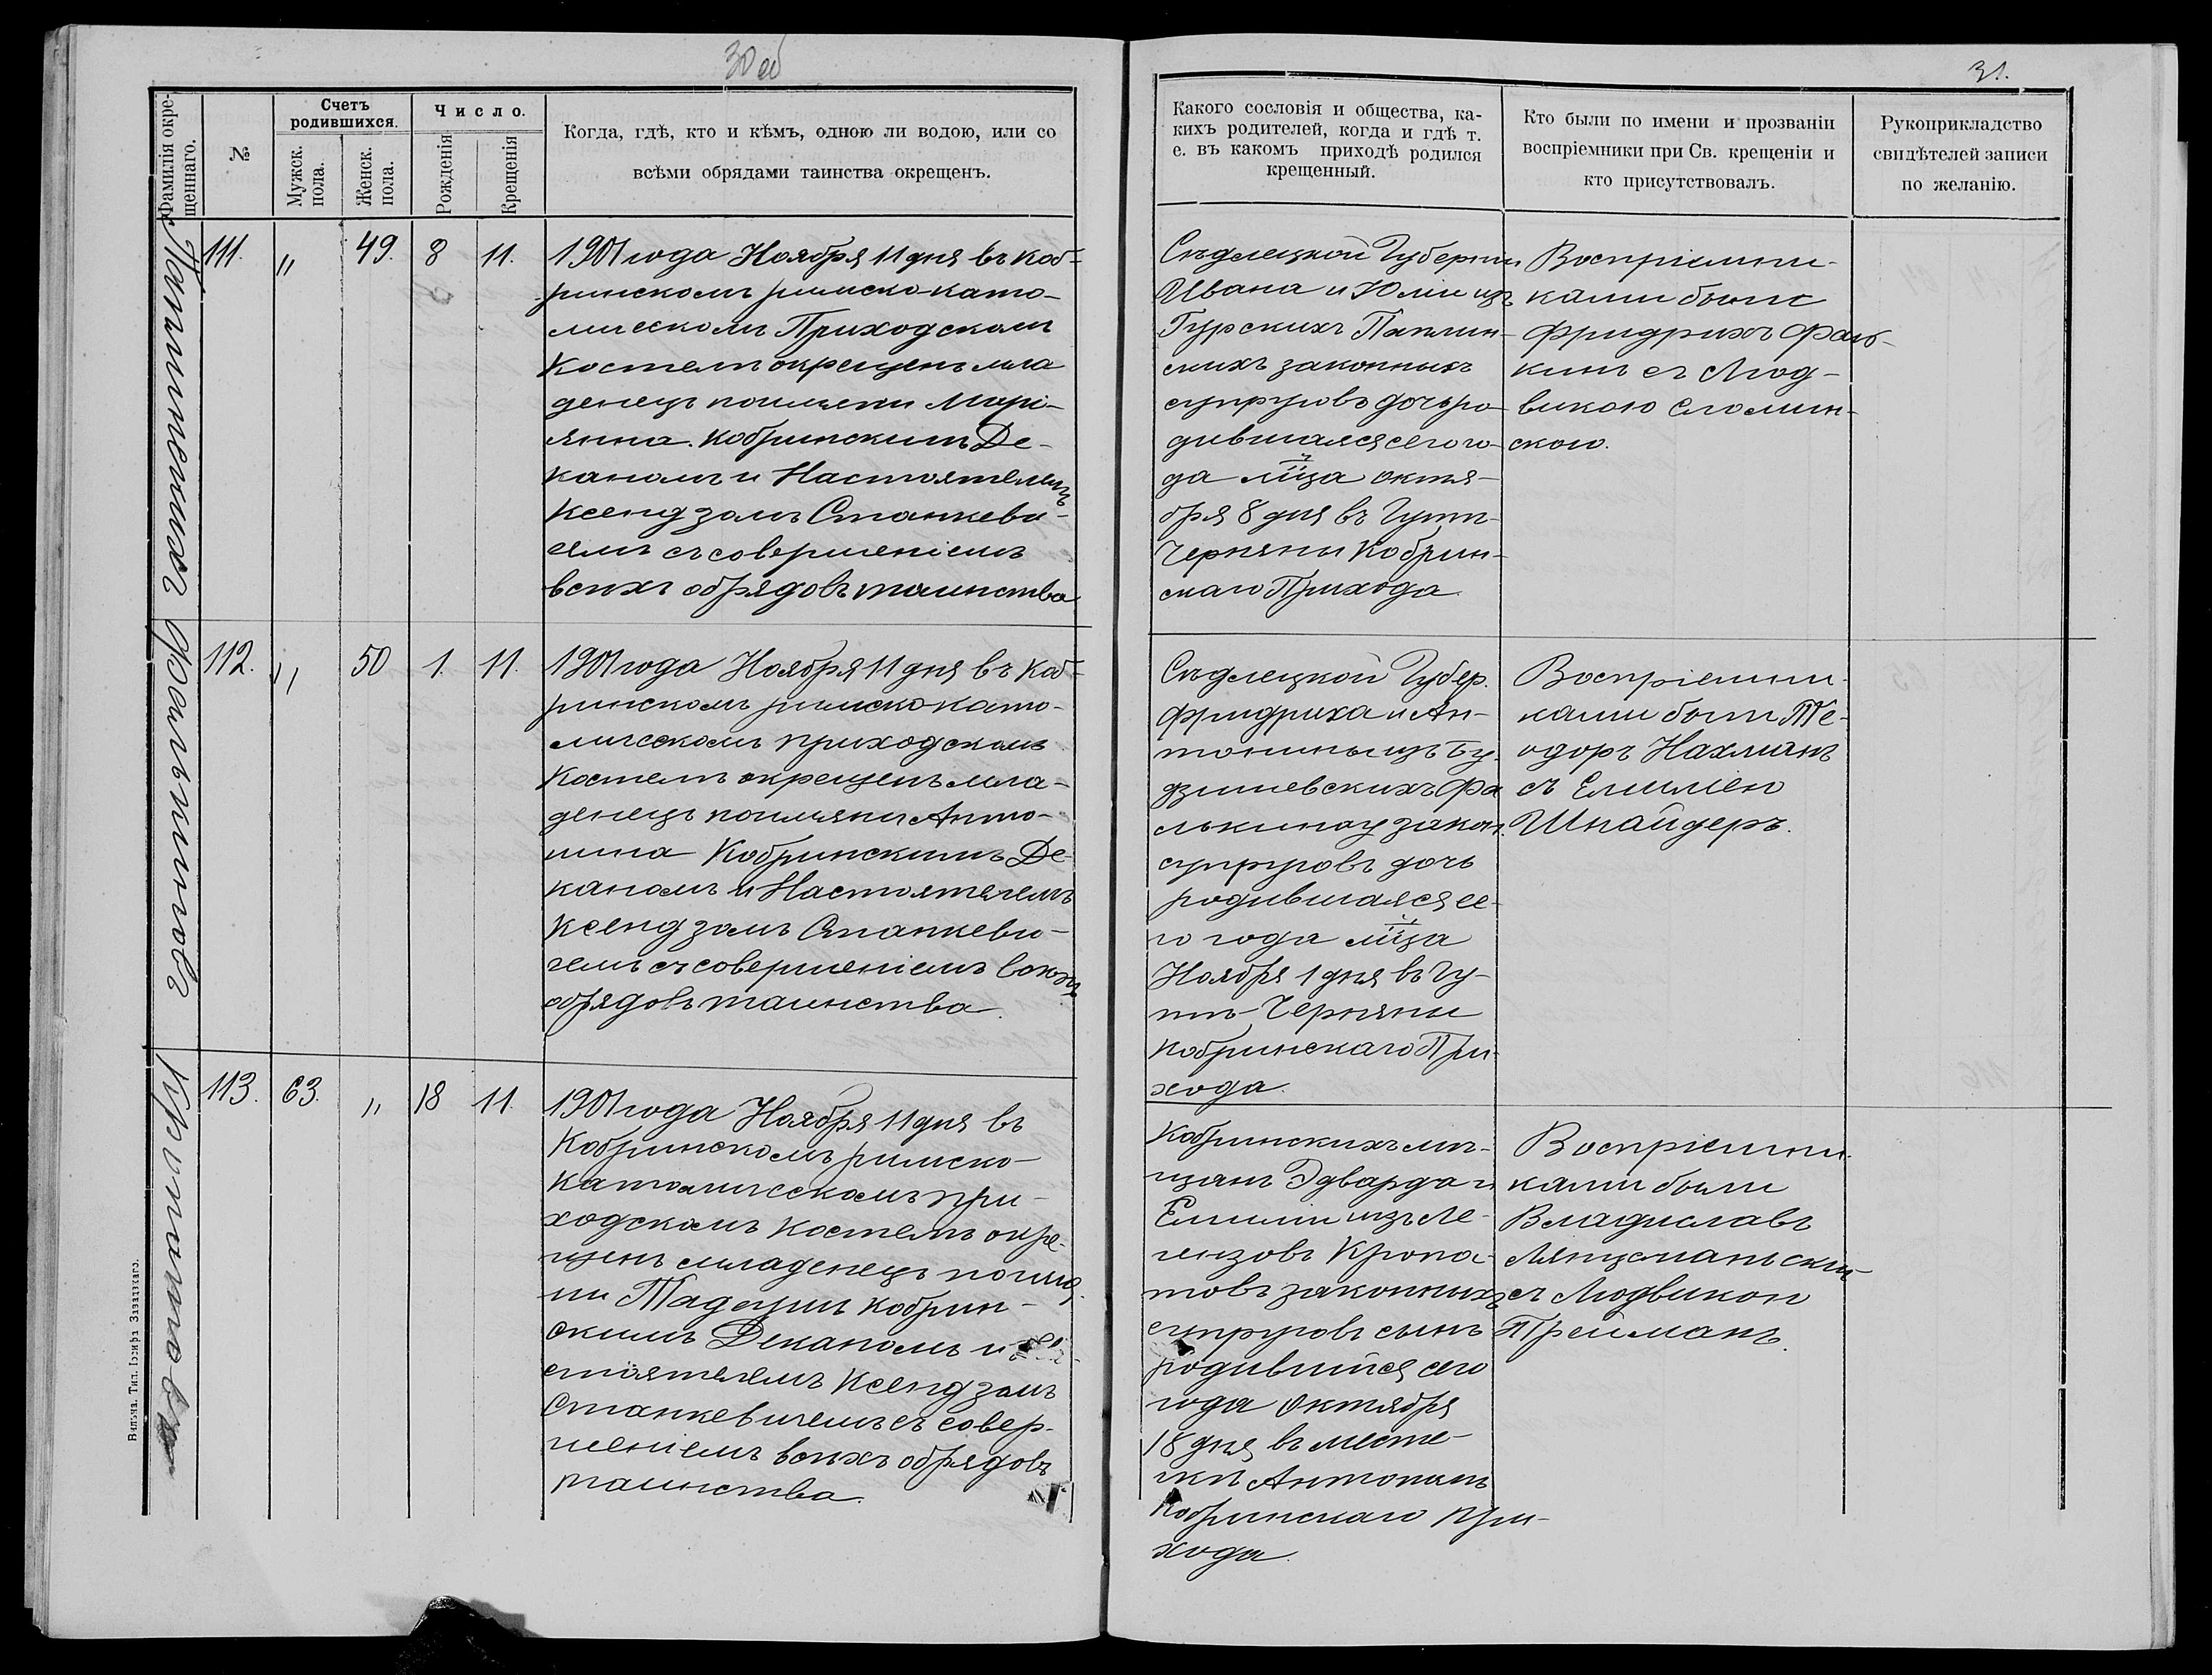 30 об
Фамилія окре-
щеннаго.
№
Счетъ
родившихся.
Мужск.
пола.
Женск.
пола.
Число.
Рожденія
Крещенія
Когда, гдѣ, кто и кѣмъ, одною ли водою, или со
всѣми обрядами таинства окрещенъ.
111.
"
49.
8
11.
1901 года Ноября 11 дня въ Коб-
ринскомъ римско-като-
лическомъ Приходскомъ
Костелѣ окрещенъ мла
денецъ по имени Марі-
янна. Кобринскимъ Де-
каномъ и Настоятелемъ
Ксендзомъ Станкеви-
чемъ съ совершеніемъ
всѣхъ обрядовъ таинства
112.
"
50
1.
11.
Фалькиновъ
1901 года Ноября 11 дня въ Коб-
ринскомъ римско като-
лическомъ приходскомъ
Костелѣ окрещенъ мла-
денецъ по имяни Анто-
нина Кобринскимъ Де-
каномъ и Настоятелемъ
Ксендзомъ Станкеви-
чемъ съ совершеніемъ всѣхъ
обрядовъ таинства.
113.
63.
"
18
11.
Кропатовъ
1901 года Ноября 11 дня въ
Кобринскомъ римско-
Католическомъ при-
ходскомъ Костелѣ окре-
щенъ младенецъ по имя-
ни Тадеушъ Кобрин-
скимъ Деканомъ и На-
стоятелемъ Ксендзомъ
Станкевичемъ съ совер-
шеніемъ всѣхъ обрядовъ
таинства.
Вильна. Тип. Іосифа Завадзкаго.
31.
Какого сословія и общества, ка-
кихъ родителей, когда и гдѣ т.
е. въ какомъ приходѣ родился
крещенный.
Кто были по имени и прозваніи
воспріемники при Св. крещеніи и
кто присутствовалъ.
Рукоприкладство
свидѣтелей записи
по желанію.
Сѣдлецкой Губерніи
Ивана и Юліи изъ
Гурскихъ Паплин-
скихъ законныхъ
супруговъ дочь ро-
дившаяся сего го-
да мца октя-
бря 8 дня въ Гутѣ
Черняны Кобрин-
скаго Прихода.
Воспріемни-
ками были
Фридрихъ Фаль-
кинъ съ Люд-
викою Сломин-
скою.
Сѣдлецкой Губер.
Фридриха и Ан-
тонины изъ Бу-
дзишевскихъ Фа
лькиноу закон.
супруговъ дочь
родившаяся се-
го года мца
Ноября 1 дня въ Гу-
тѣ-Черняны
Кобринскаго При-
хода.
Воспріемни-
ками были Те-
одоръ Нахманъ
съ Емиліею
Шнайдеръ.
Кобринскихъ мѣ-
щанъ Эдварда и
Емиліи изъ Ле-
Кропа-
товъ законныхъ
супруговъ сынъ
родившійся сего
года Октября
18 дня въ месте-
чкѣ Антополь
Кобринскаго при-
хода.
Воспріемни-
ками были
Владиславъ
съ Людвикою
Прейманъ.